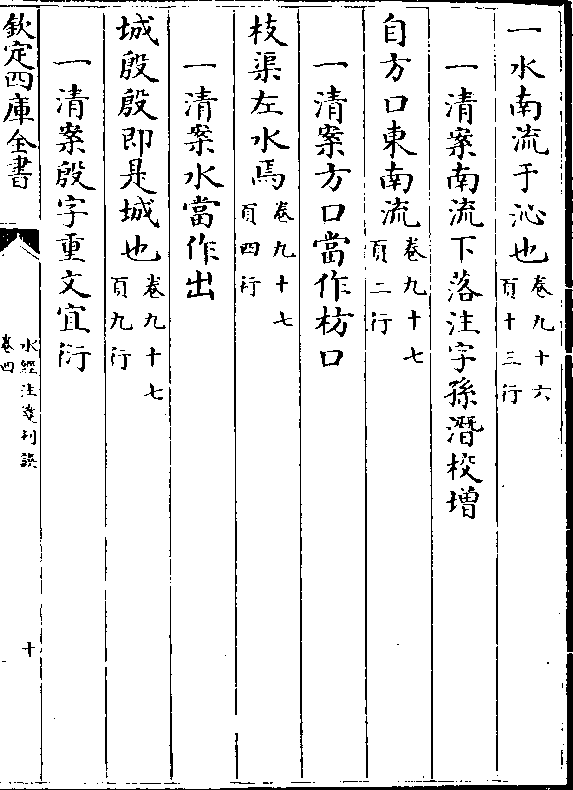 一水南流于沁也卷九十六頁十三行
一清案南流下落注字孫潛校增
自方口東南流卷九十七頁二行
一清案方口當作枋口
枝渠左水焉卷九十七頁四行
一清案水當作出
城殷殷即是城也卷九十七頁九行
一清案殷字重文宜衍
欽定四庫全書
水經注箋刊誤
卷四
十